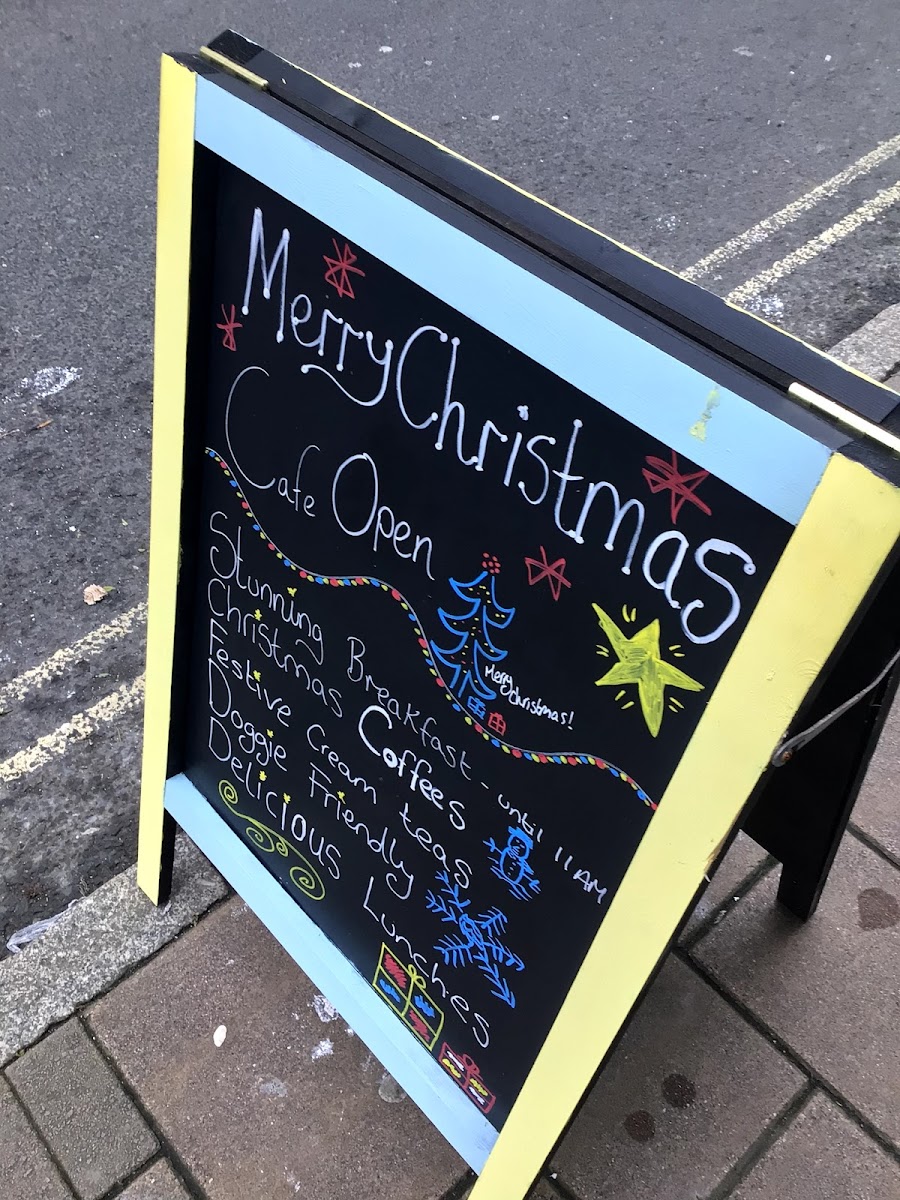 Merry Christmas
Cafe Open
Merry
Christmas!
Stunning Breakfast - until 11AM
Christmas Coffees
Festive Cream teas
Doggie Friendly
Delicious Lunches